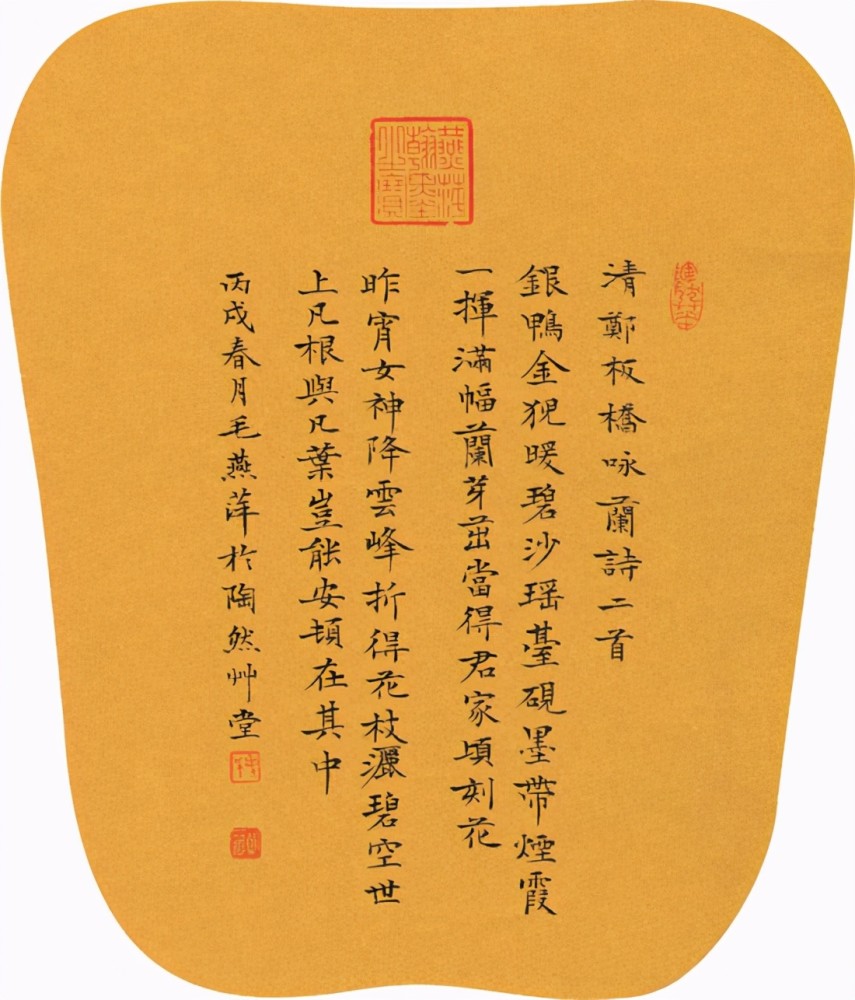 燕萍翰墨之寶
清鄭板橋咏蘭詩二首
銀鴨金猊暖碧沙瑶臺硯墨帶煙霞
一揮滿幅蘭芽茁當得君家頃刻花
昨宵女神降雲峰折得花枝灑碧空世
上凡根與凡葉豈能安頓在其中
丙戌春月毛燕萍於陶然艸堂